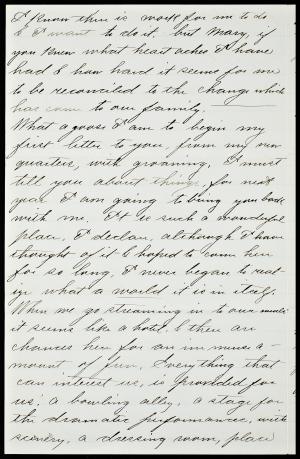 I know there is work for me to do
& I want to do it. but Mary, if
you knew what heart aches I have
had & how hard it seems for me
to be reconciled to the change which
has come to our family.
What a goose I am to begin my
first letter to you, from my new
quarters, with groaning. I must
tell you about things, for next
year I am going to bring you back
with me. It is such a wonderful
place, I declare, although I have
thought of it & hoped to come here
for so long, I never began to real-
ize what a world it is in itself.
When we go streaming in to our meals
it seems like a hotel. & there are
chances here for an immense a-
mount of fun. Everything that
can interest us, is provided for
us: a bowling alley, a stage for
the dramatic performances, with
scenery, a dressing room, place